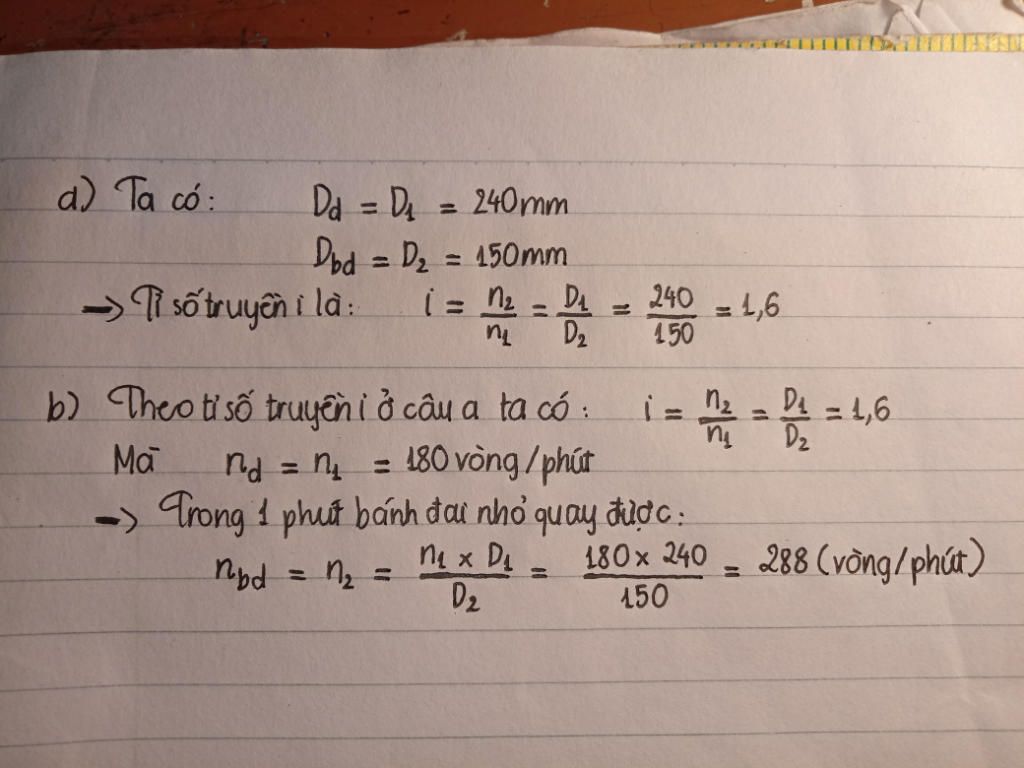 a) Ta có: D_d = D_1 = 240mm
D_bd = D_2 = 150mm
→ Tỉ số truyền i là: i = n_2/n_1 = D_1/D_2 = 240/150 = 1,6
b) Theo tỉ số truyền i ở câu a ta có: i = n_2/n_1 = D_1/D_2 = 1,6
Mà n_d = n_1 = 180 vòng/phút
→ Trong 1 phút bánh đai nhỏ quay được:
n_bd = n_2 = (n_1 x D_1)/D_2 = (180 x 240)/150 = 288 (vòng/phút)